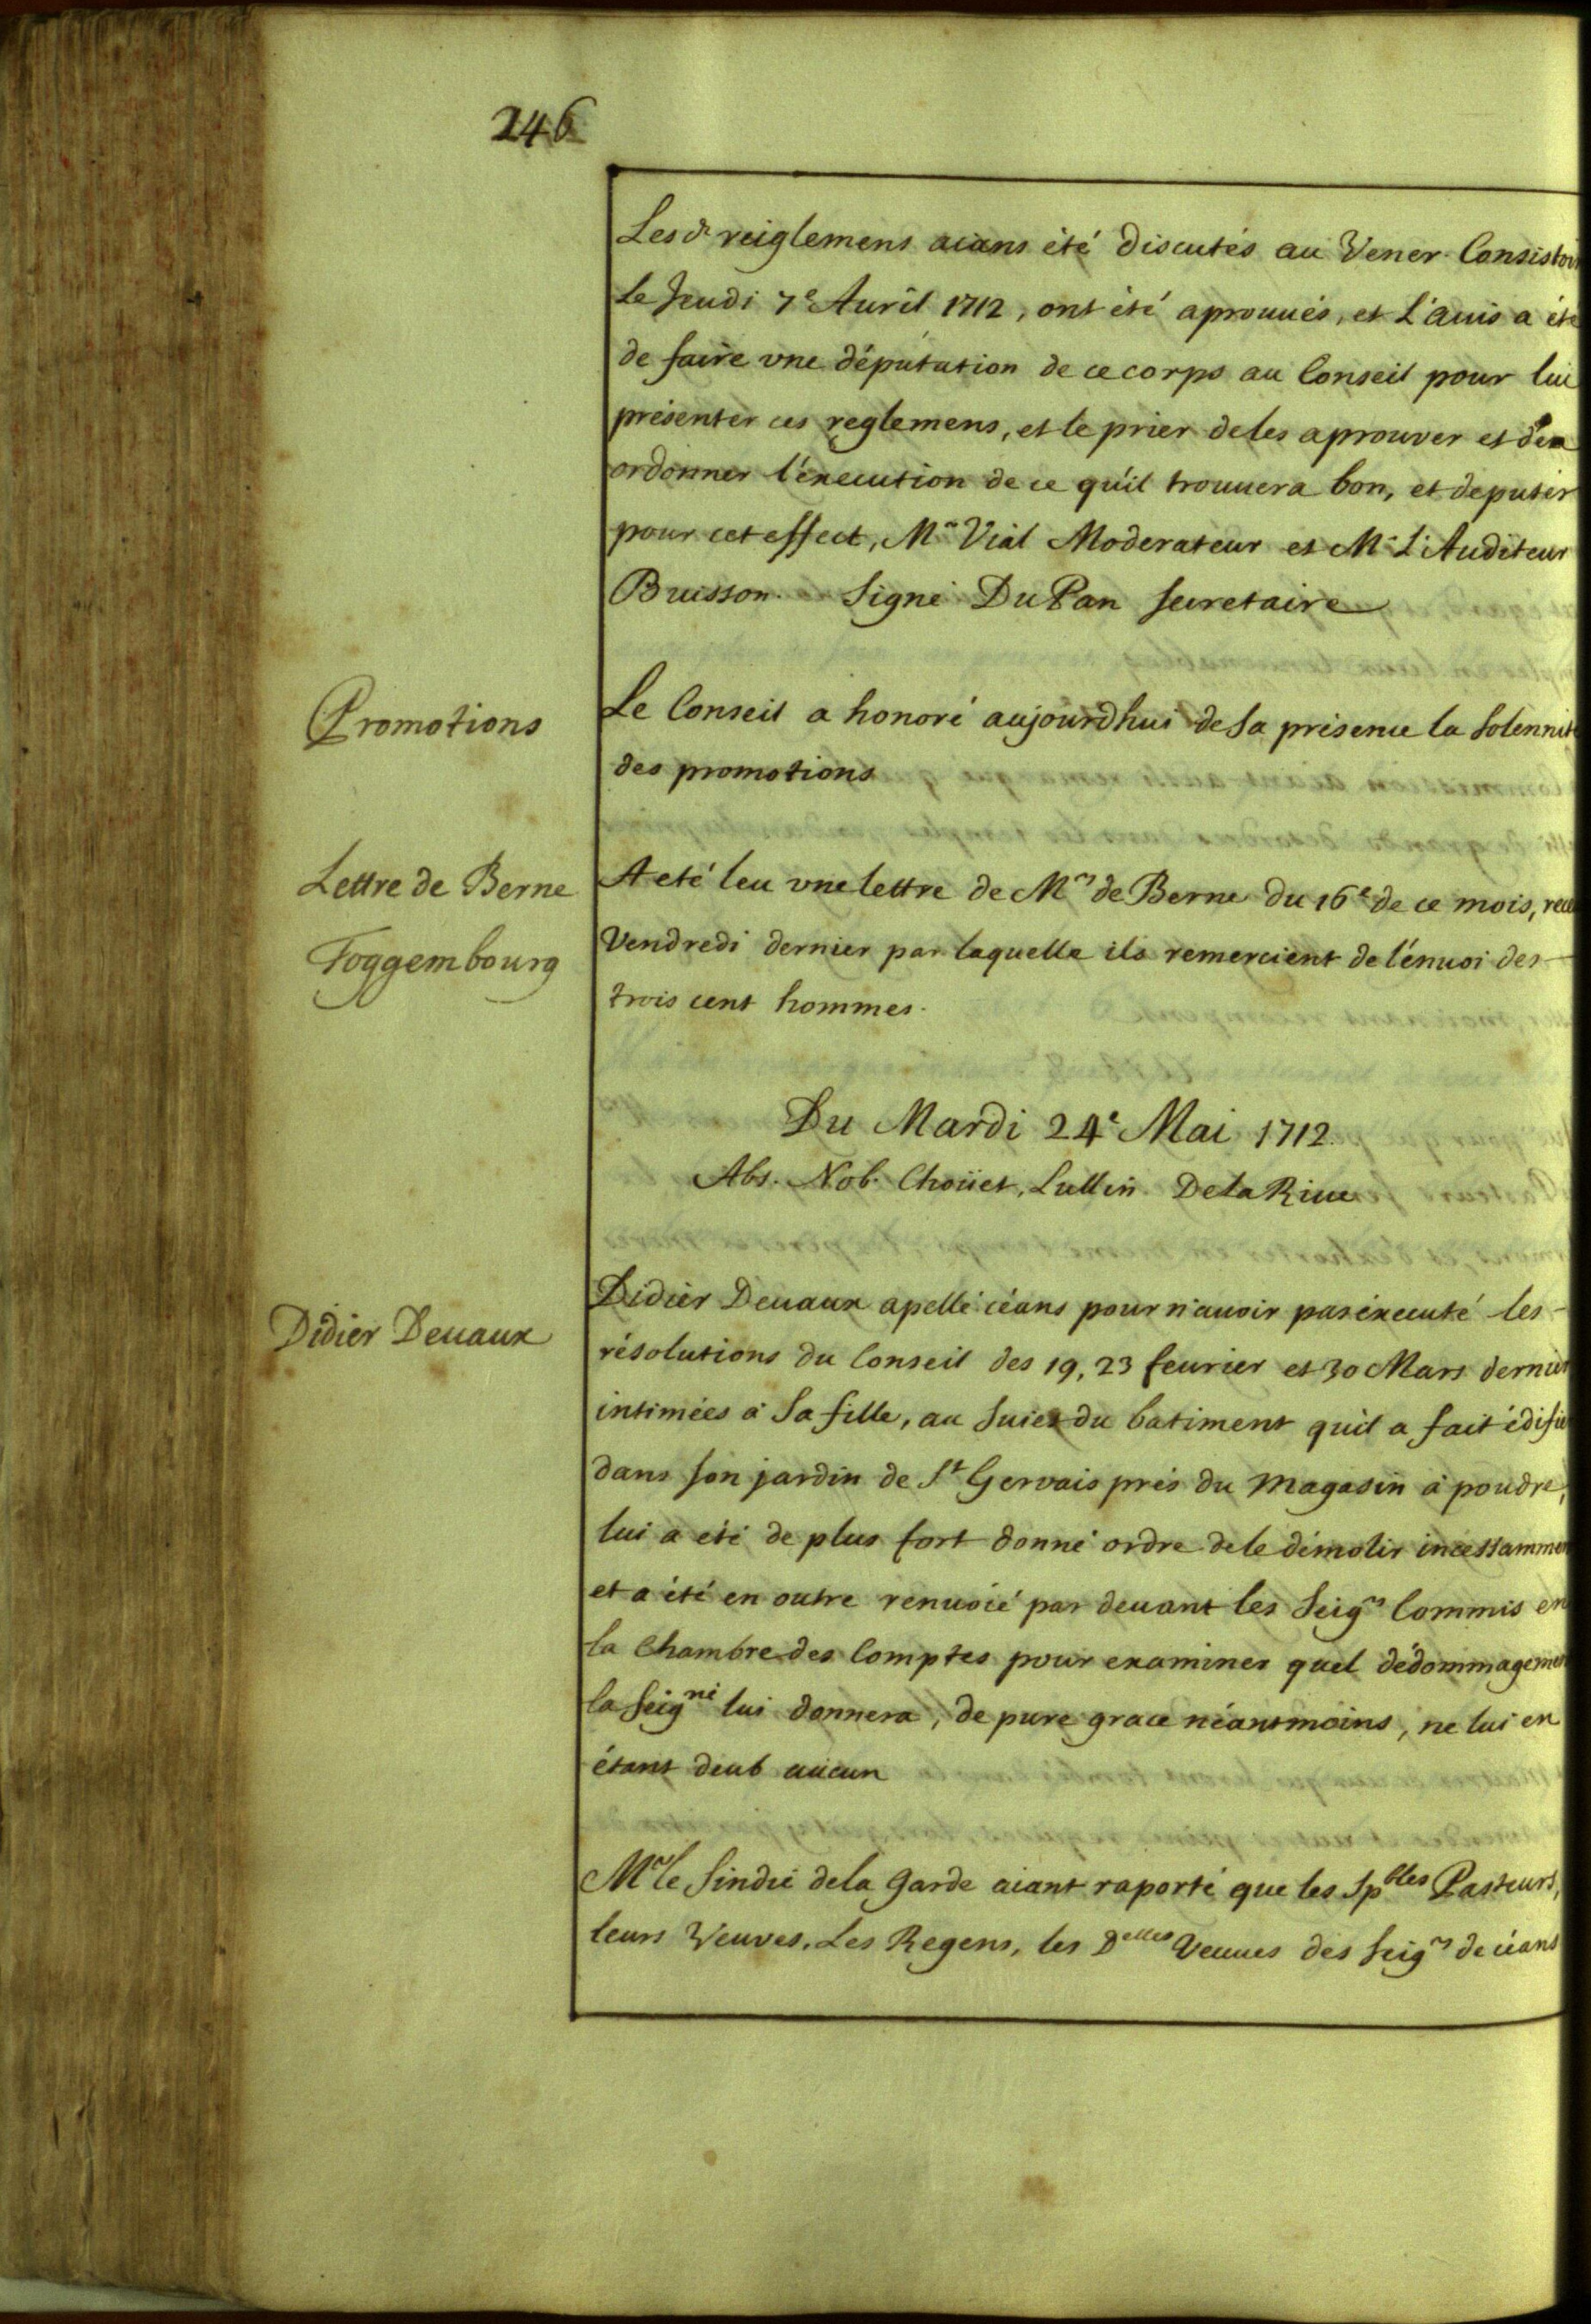 246
Les d. reiglemens aians été discutés au Vener. Consistoi
le Jeudi 7e Auril 1712, ont été aprouués, et L'auis a été
de faire vne députation de ce corps au Conseil pour lui
présenter ces reglemens, et le prier de les aprouver et d'en
ordonner l'execution de ce qu'il trouuera bon, et deputer
pour cet effect, Mr. Vial Moderateur et Mr. L'Auditeur
Buisson. Signé DuPan secretaire
Promotions
Le Conseil a honoré aujourdhui de sa présence la solennité
des promotions
Lettre de Berne
Toggembourg
A eté leu vne lettre de Mrs de Berne du 16e de ce mois, receu
Vendredi dernier par laquelle ils remercient de l'énuoi des
trois cent hommes.
Du Mardi 24e Mai 1712.
Abs. Nob. Choüet, Lullin De la Riue
Didier Deuaux
Didier Deuaux apellé céans pour n'auoir pas éxecuté les
résolutions du Conseil des 19, 23 feurier et 30 Mars dernier
intimées à sa fille, au suiet du batiment qu'il a fait édifie
dans son jardin de St Gervais prés du magasin à poudre,
lui a été de plus fort donné ordre de le démolir incessammen
et a été en outre renuoié par deuant les Seigrs Commis en
la Chambre des Comptes pour examiner quel dédommagemen
la Seigrie lui donnera, de pure grace néantmoins, ne lui en
étant deub aucun
Mr le Sindic de la Garde aiant raporté que les Spbles Pasteurs,
leurs Veuves, Les Regens, les Delles Veuues des Seigrs de céans